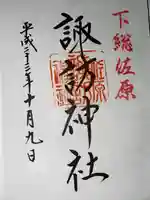 下総佐原
諏訪神社
平成二十二年十月九日